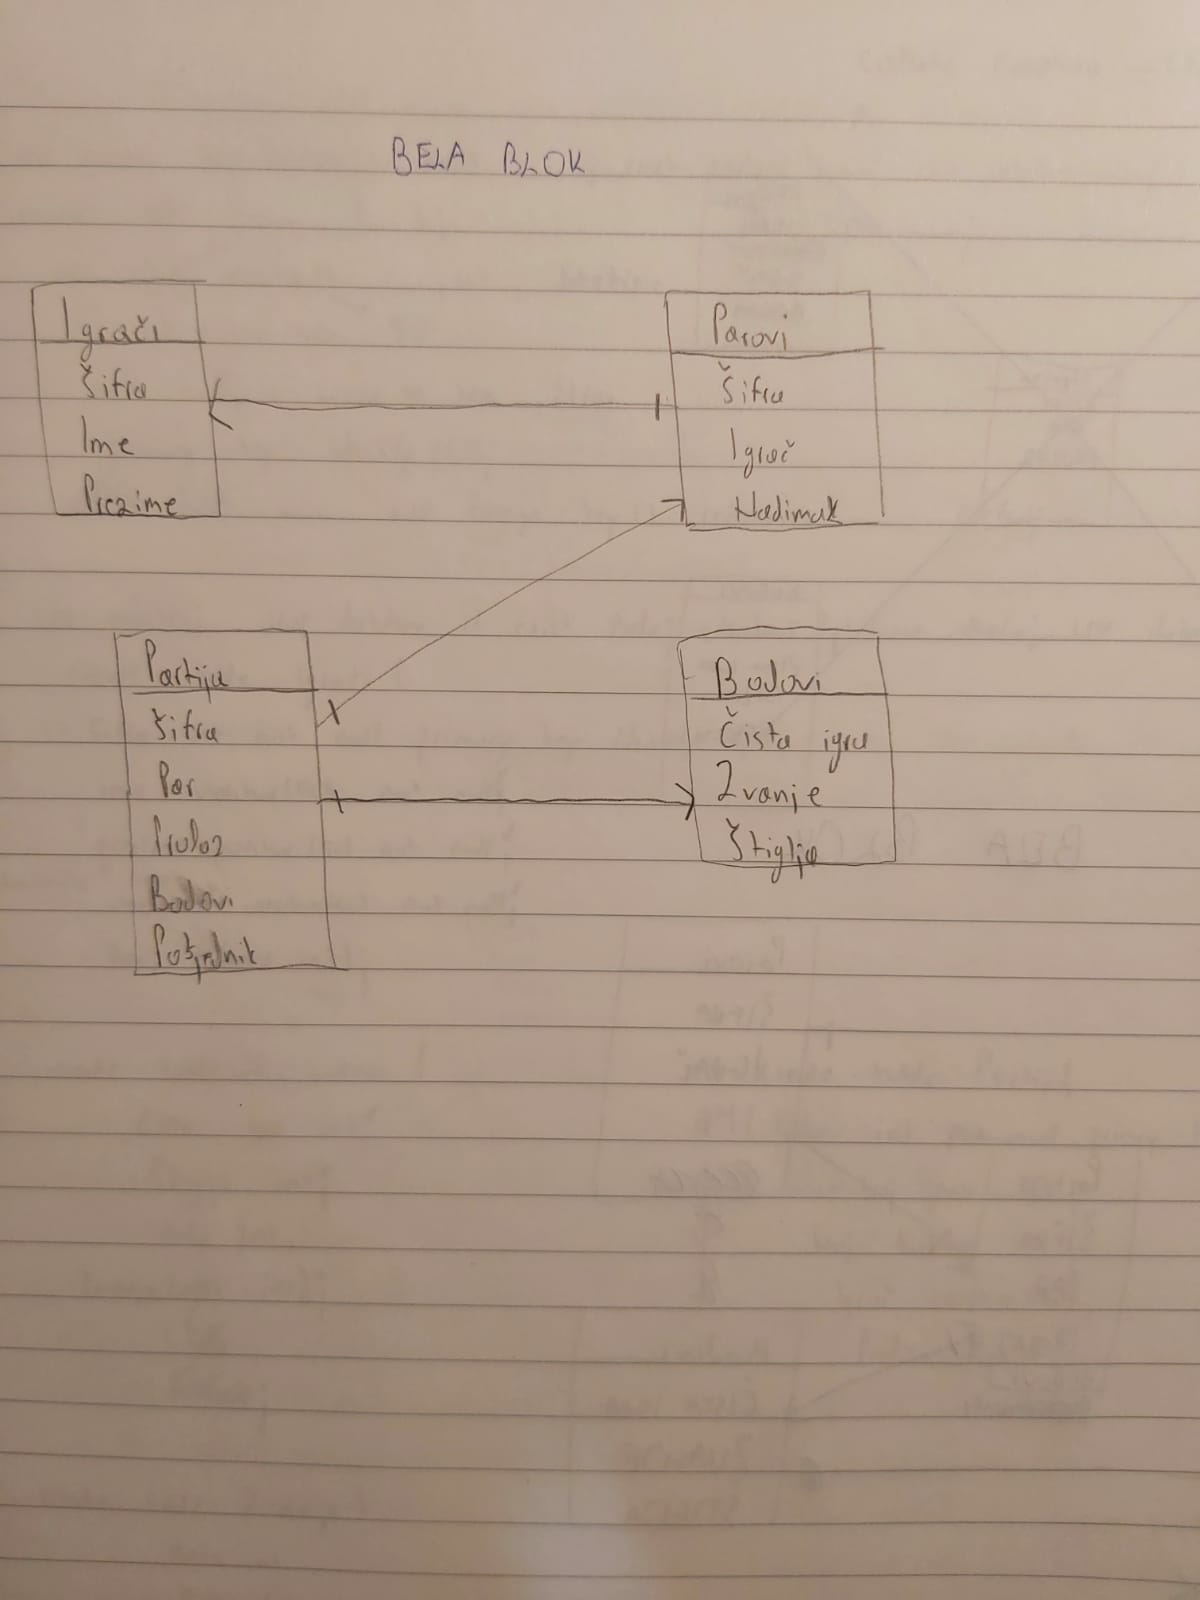 BELA BLOK
Igrači
Šifra
Ime
Prezime
Parovi
Šifra
Igrač
Nadimak
Partija
Šifra
Par
Bodovi
Pobjednik
Bodovi
Čista igra
Zvanje
Štiglja